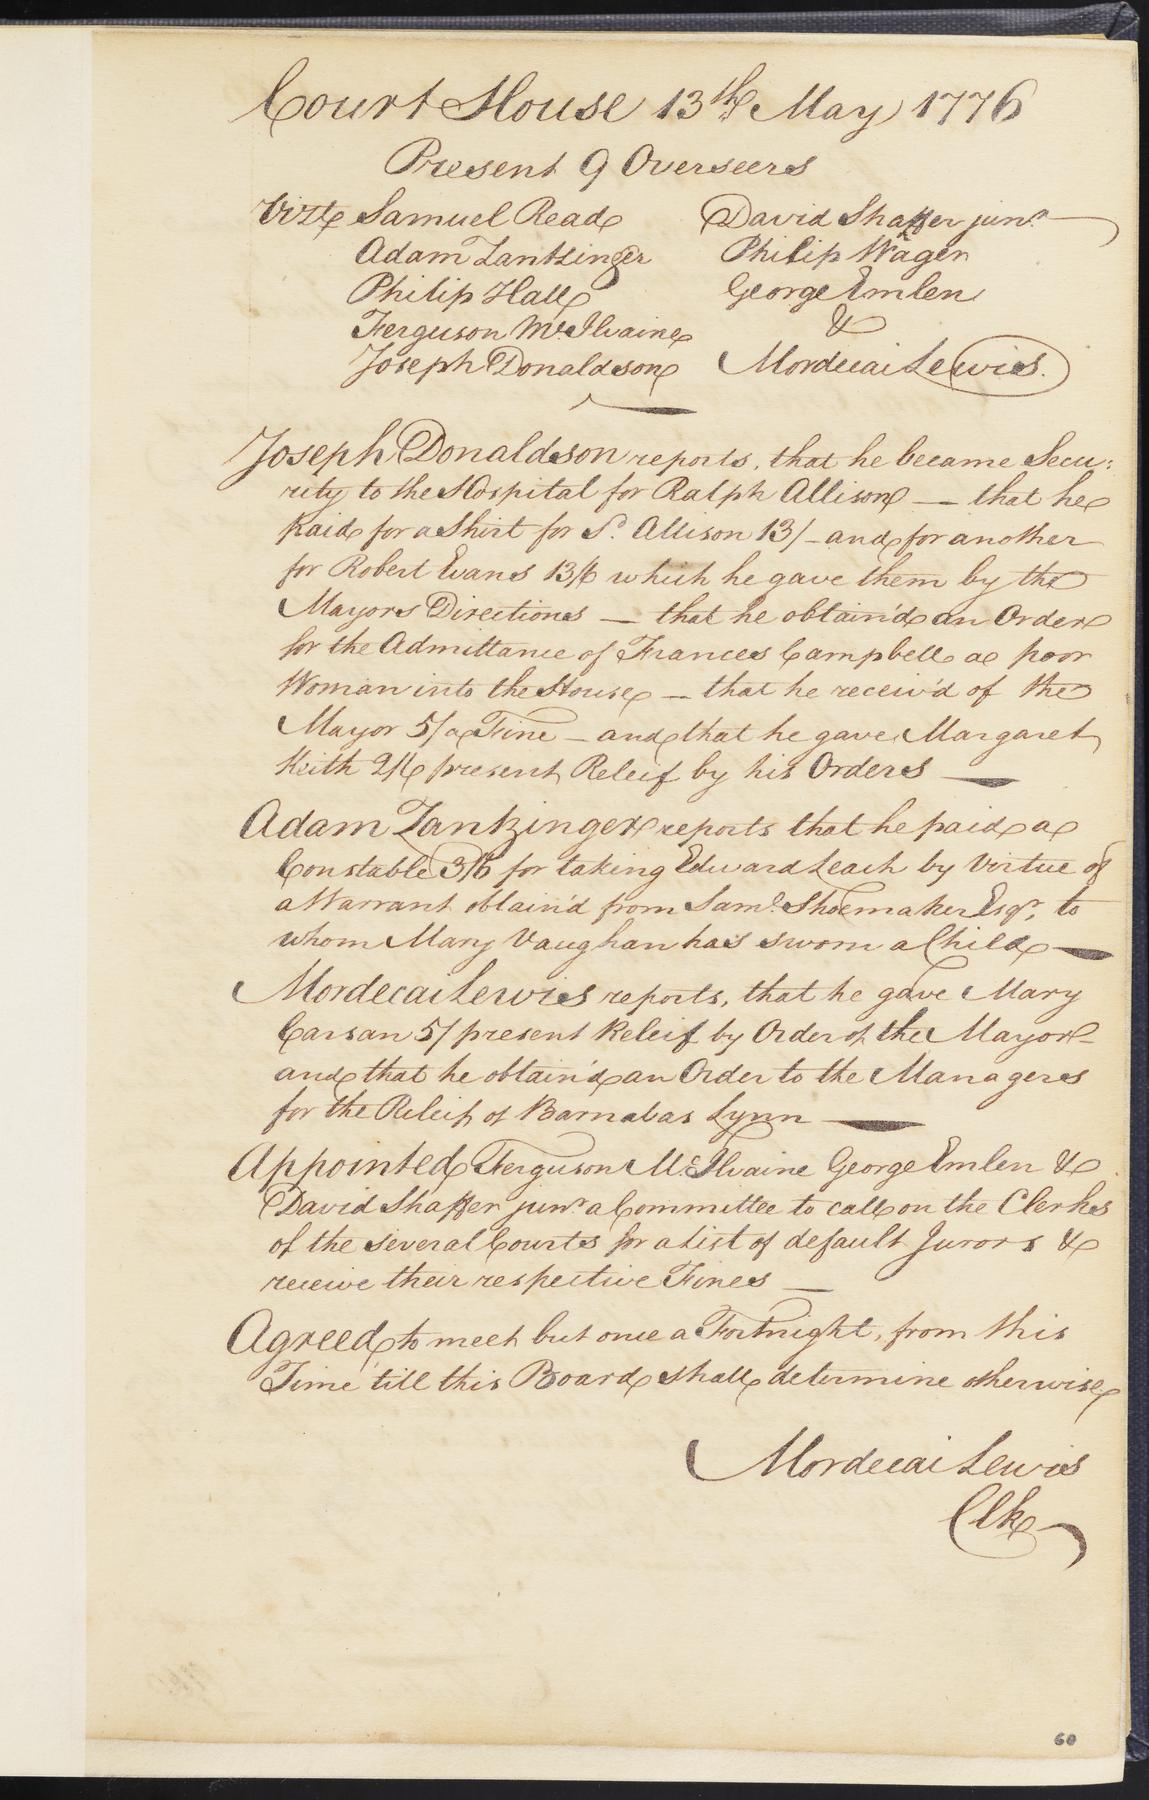 Court House 13th May 1776
Present 9 Overseers
Vizt Samuel Read David Shaffer junr
Adam Zantzinger Philip Wager
Philip Hall George Emlen
Ferguson McIlvaine &
Joseph Donaldson Mordecai Lewis.
Joseph Donaldson reports, that he became Secu:
rity to the Hospital for Ralph Allison — that he
paid for a Shirt for Sd. Allison 13/– and for another
for Robert Evans 13/6 which he gave them by the
Mayors Directions — that he obtain'd an Order
for the Admittance of Frances Campbell a poor
Woman into the House — that he receiv'd of the
Mayor 5/ a Fine – and that he gave Margaret
Keith 2/6 present Releif by his Orders —
Adam Zantzinger reports that he paid a
Constable 3/6 for taking Edward Leach by Virtue of
a Warrant obtain'd from Saml. Shoemaker Esqr, to
whom Mary Vaughan has sworn a Child —
Mordecai Lewis reports, that he gave Mary
Carsan 5/ present Releif by Order of the Mayor –
and that he obtain'd an Order to the Managers
for the Releif of Barnabas Lynn —
Appointed Ferguson McIlvaine George Emlen &
David Shaffer junr a Committee to call on the Clerks
of the several Courts for a List of default Jurors &
receive their respective Fines —
Agreed to meet but once a Fortnight, from this
Time 'till this Board shall determine otherwise
Mordecai Lewis
Clk
60